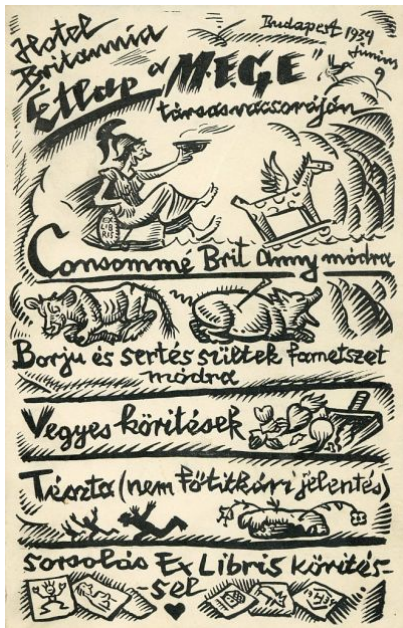 Hotel
Britannia
Budapest 1934
Junius
9
Étlap a "M.E.G.E"
társasvacsoráján
EX
LIB
RIS
Consommé Brit Anny módra
Borju és sertés sültek fametszet
módra
Vegyes köritések
Tészta (nem főtitkári jelentés)
Sorsolás Ex Libris körités-
sel